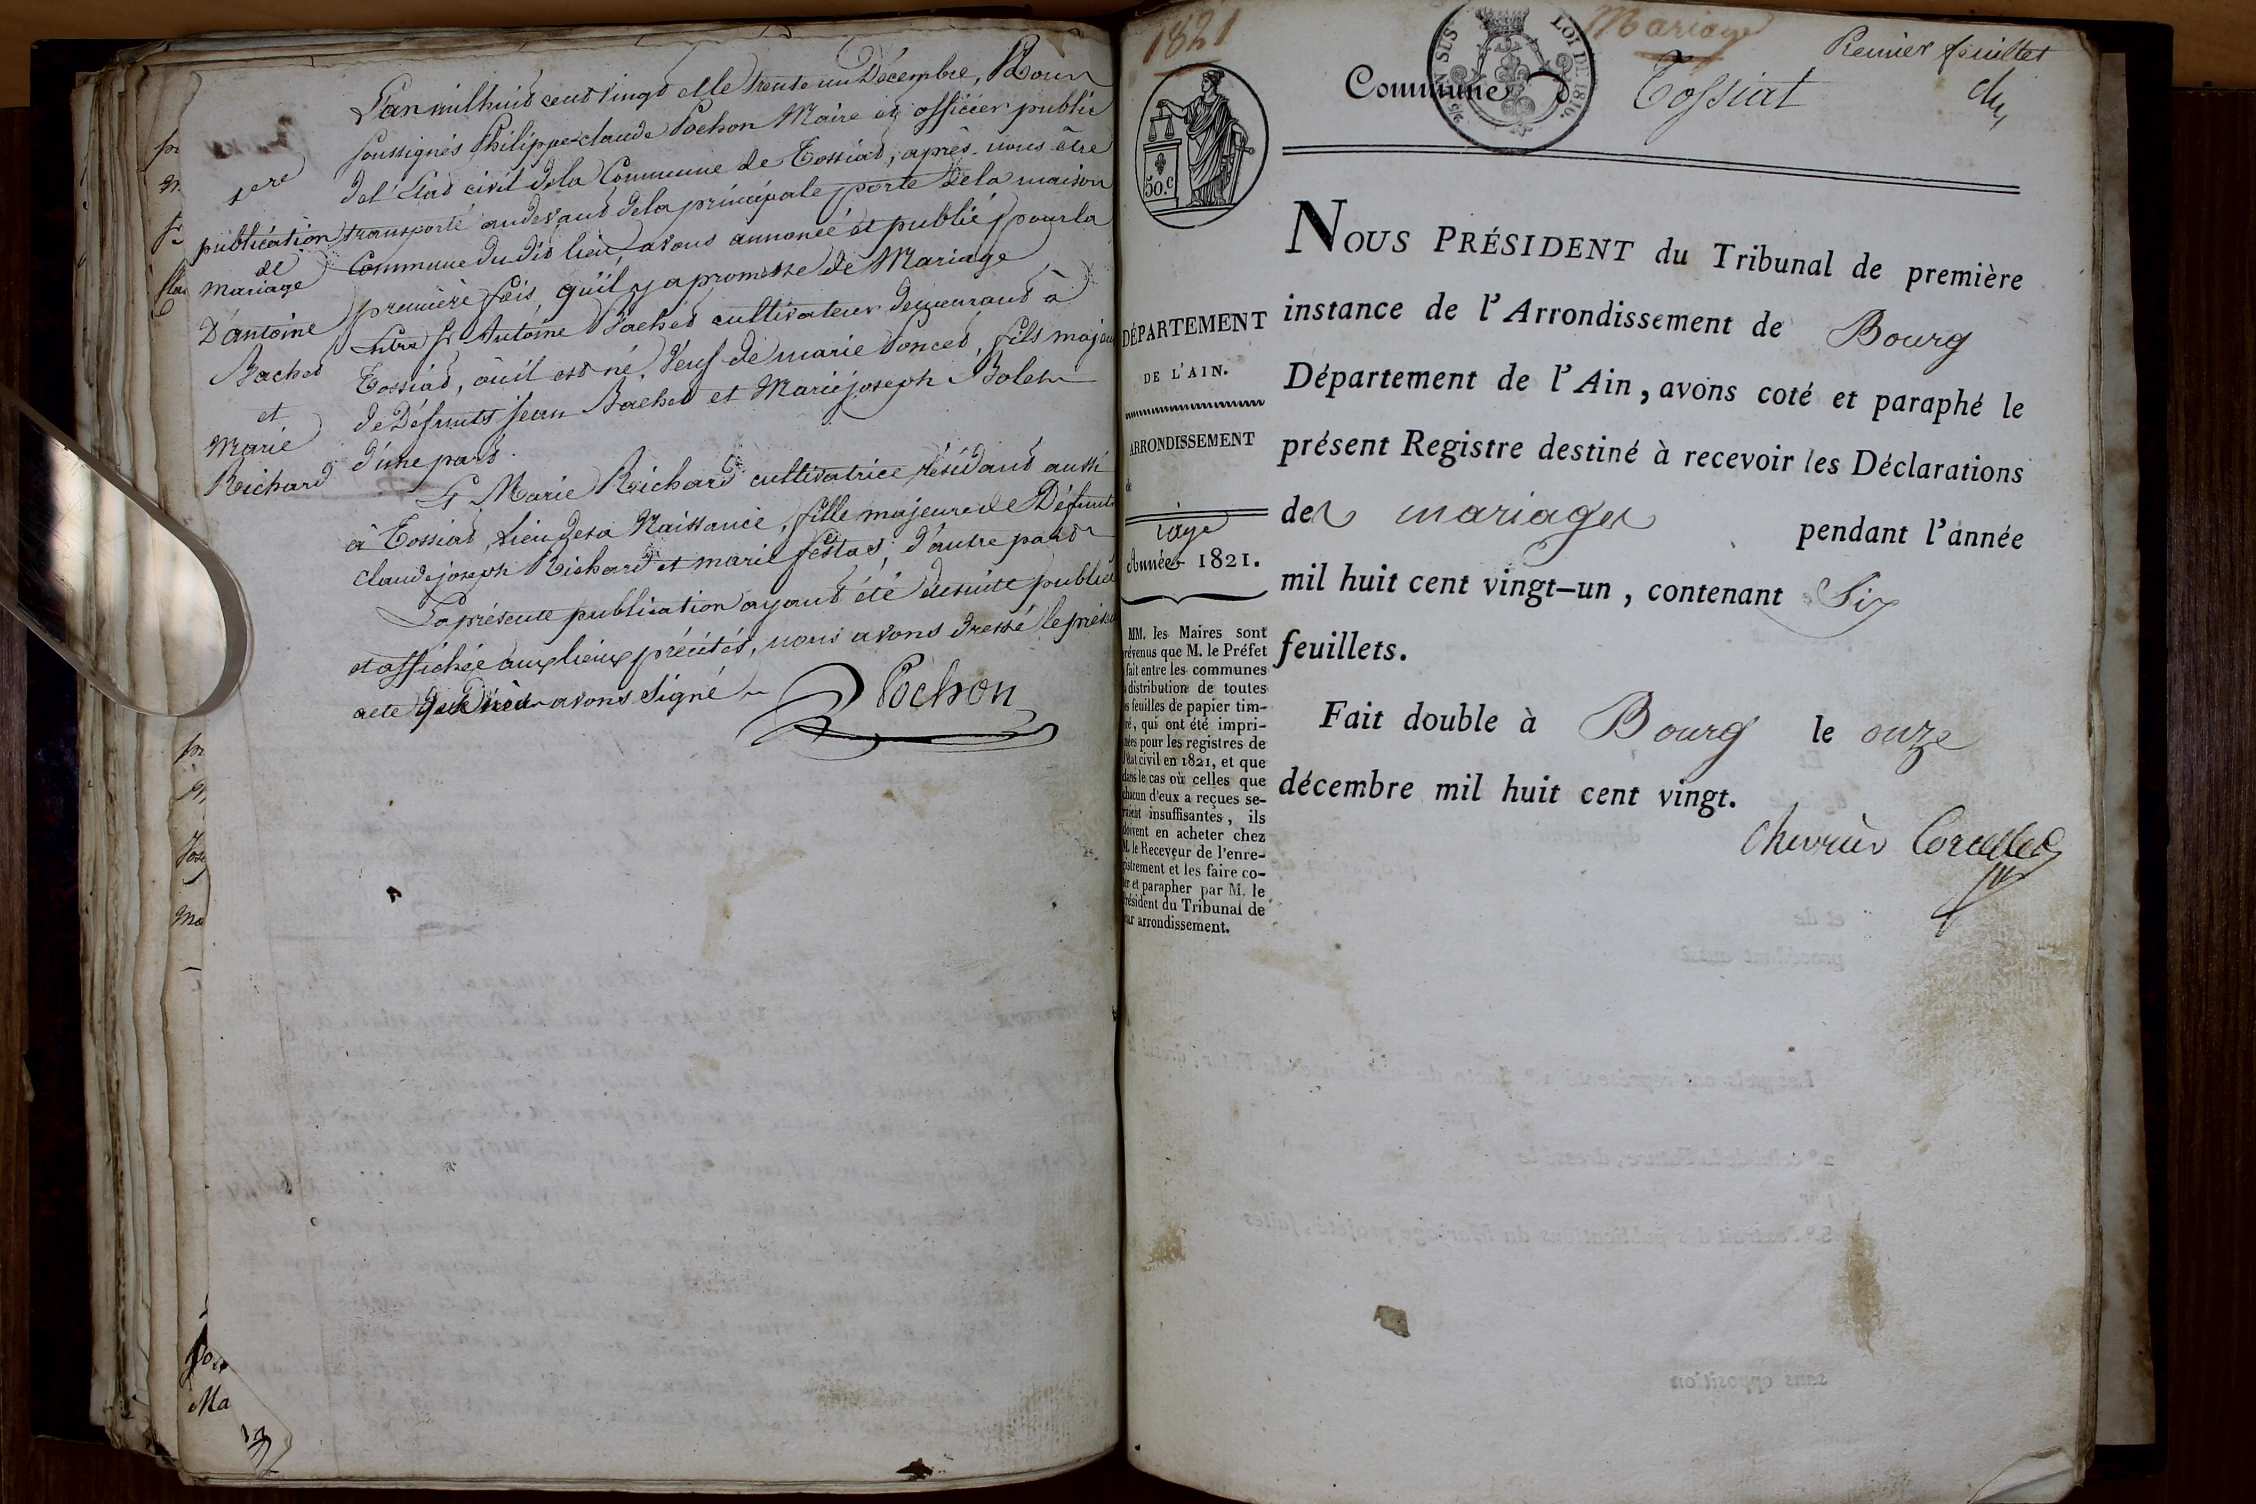 L'an mil huit cent vingt et le trente un Décembre, Nous
soussignés Philippe claude Pochon Maire et officier public
del'Etat civil dela Commune de Tossiat, après nous être
transporté audevant dela principale porte dela maison
Commune du dit lieu, avons annoncé et publié pour la
première fois, qu'il y a promesse de Mariage
Entre sr Antoine Bachet cultivateur demeurant à
Tossiat, où il est né, Veuf de marie Poncet, fils majeur
de Défunts jean Bachet et Marie joseph Bolet
d'une part.
Et Marie Richard cultivatrice résidant aussi
à Tossiat, lieu desa Naissance, fille majeure de Défunts
claude joseph Richard et marie festas, d'autre part
La présente publication ayant été desuite publiée
et affichée aux lieux précités, nous avons dressé le présent
acte que nous avons signé
Pochon
1ere
publication
de
mariage
D'antoine
Bachet
et
Marie
Richard
pr
Jose
Ma
Ma
1821
Mariage
Premier feuillet
Commune d Tossiat
LOI DE 1816.
50.c
DÉPARTEMENT
DE L'AIN.
ARRONDISSEMENT
de
Année 1821.
MM. les Maires sont
prévenus que M. le Préfet
fait entre les communes
distribution de toutes
feuilles de papier tim-
bré, qui ont été impri-
mées pour les registres de
l'état civil en 1821, et que
dans le cas où celles que
chacun d'eux a reçues se-
raient insuffisantes, ils
doivent en acheter chez
M. le Receveur de l'enre-
gistrement et les faire co-
ter et parapher par M. le
Président du Tribunal de
leur arrondissement.
NOUS PRÉSIDENT du Tribunal de première
instance de l'Arrondissement de Bourg
Département de l'Ain, avons coté et paraphé le
présent Registre destiné à recevoir les Déclarations
des mariages pendant l'année
mil huit cent vingt-un, contenant Six
feuillets.
Fait double à Bourg le onze
décembre mil huit cent vingt.
Chevrier Corcelles